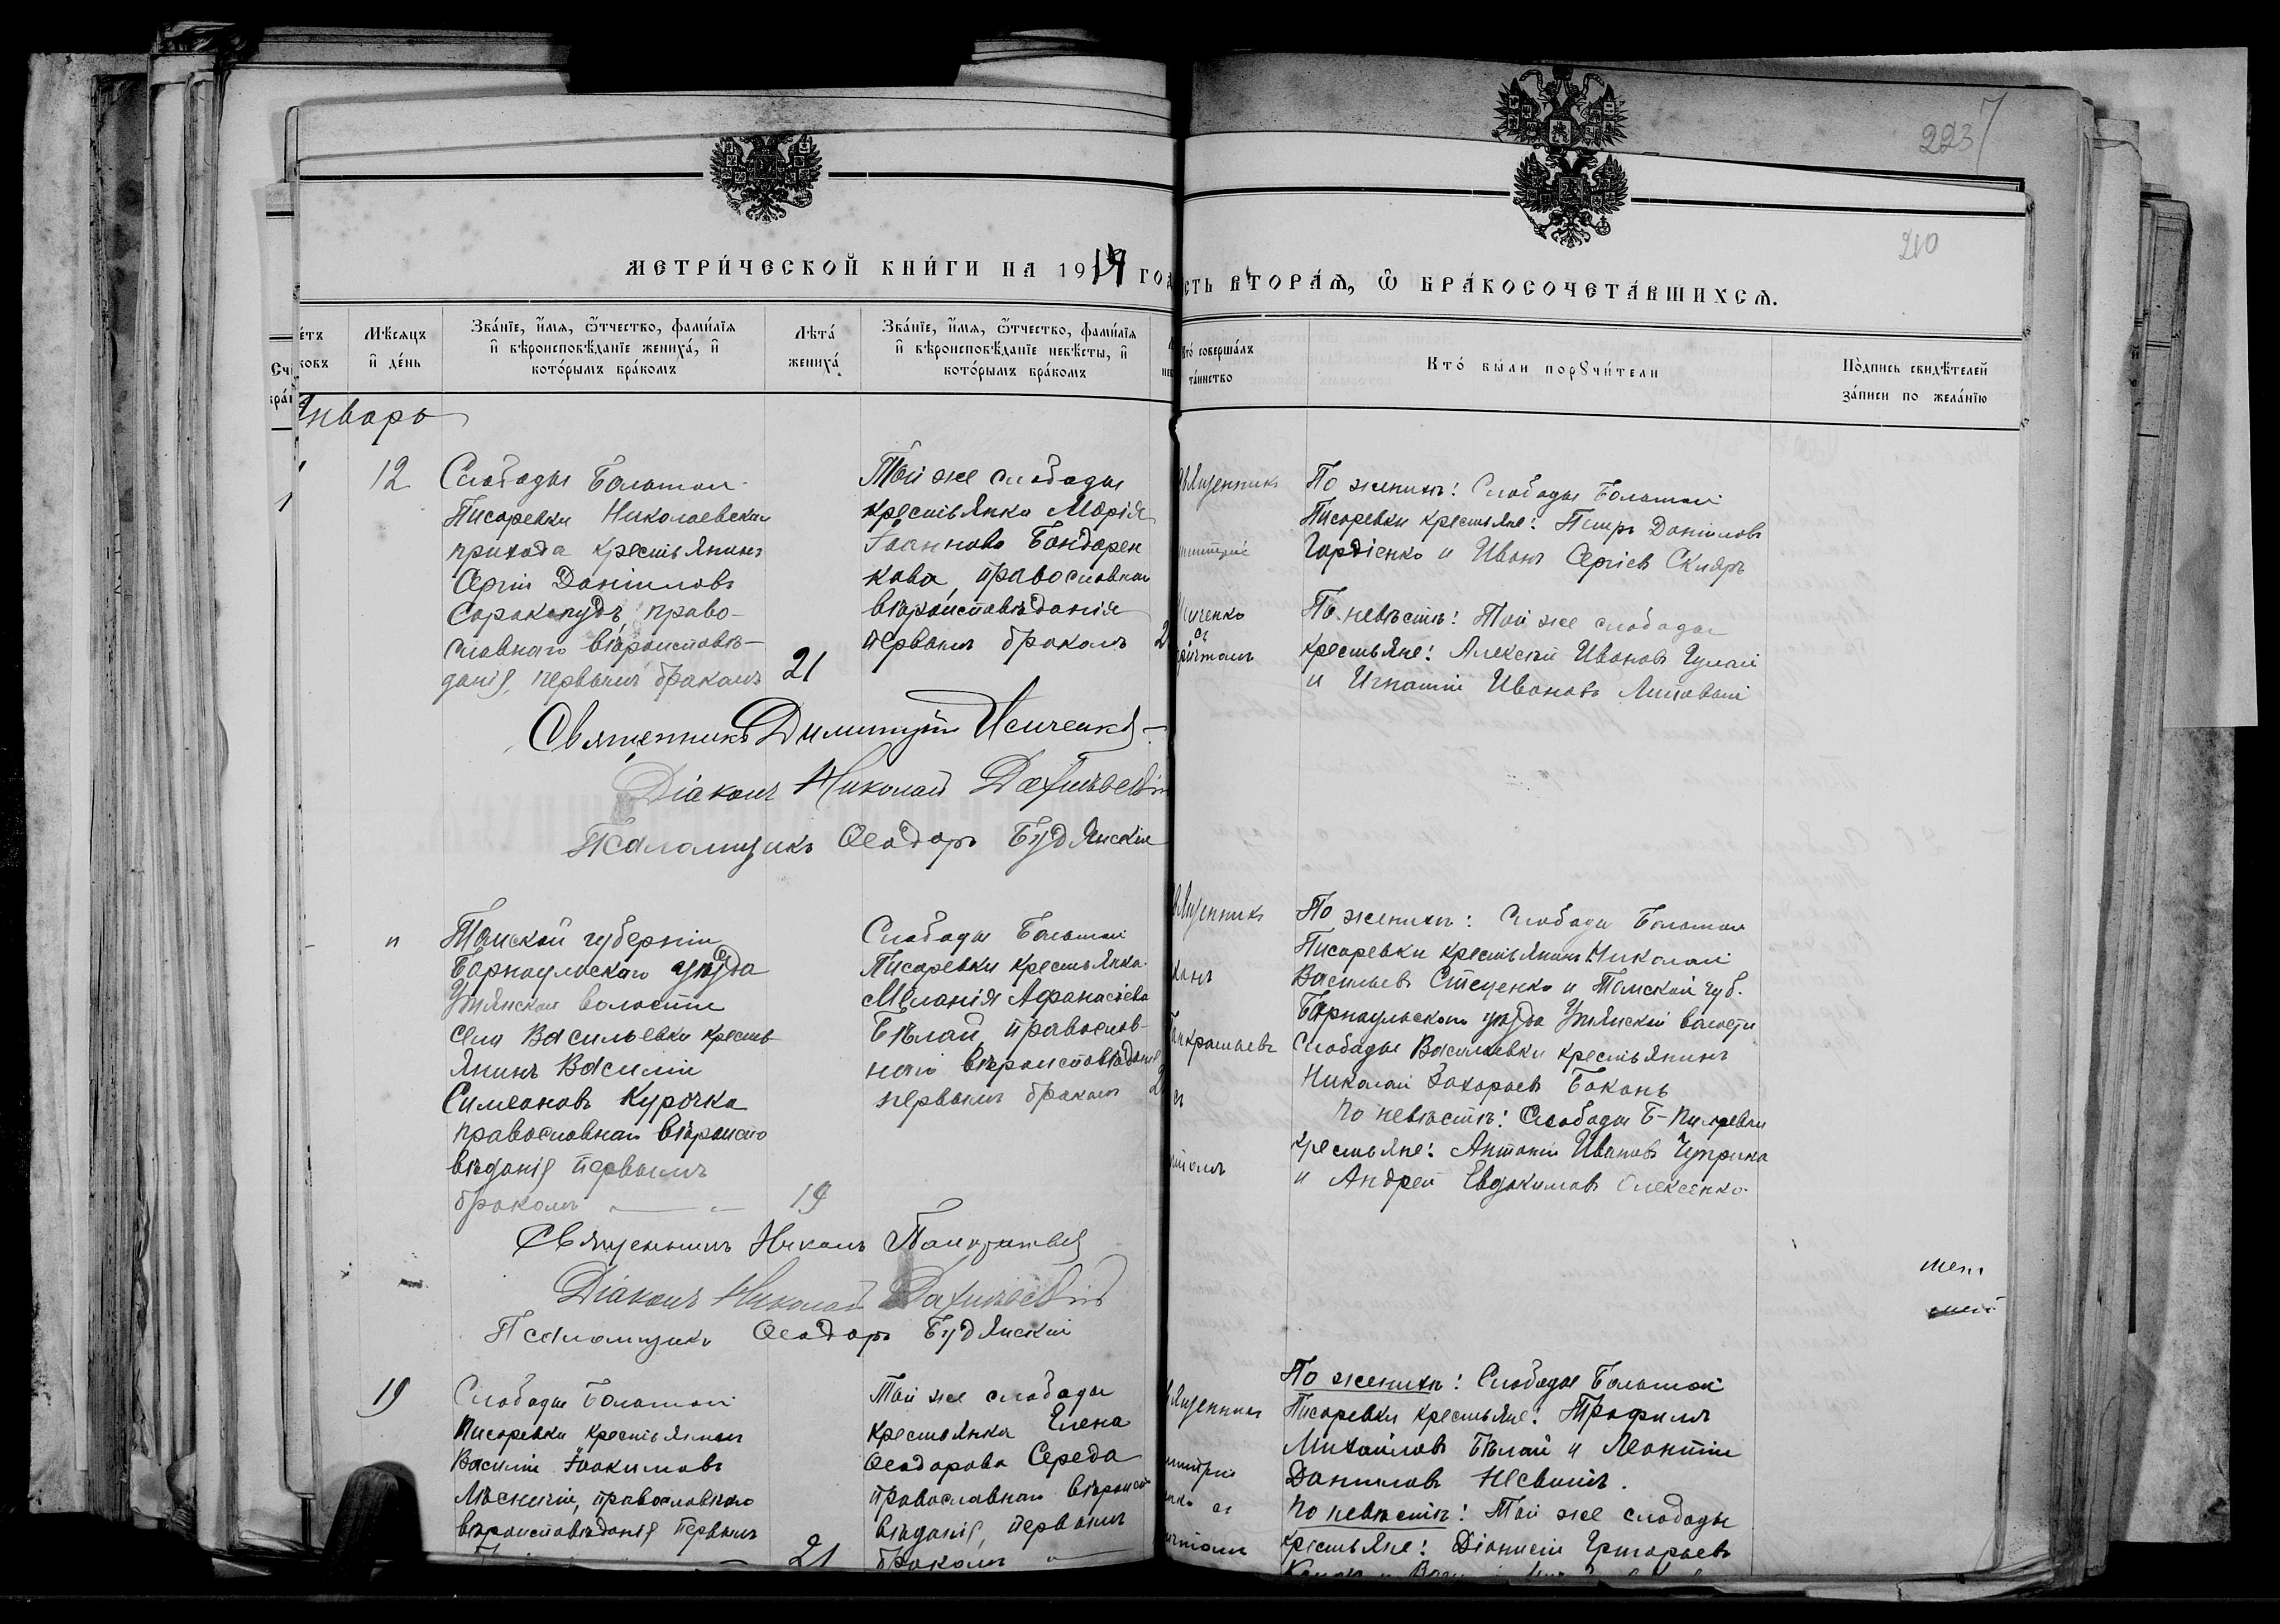 223
7
210
МЕТРИ́ЧЕСКОЙ КНИ́ГИ НА 1914 ГОД
СТЬ ВТОРА́Ѧ, Ѽ БРА́КОСОЧЕТА́ВШИХСѦ.
Мѣ́сяцъ
и҆ де́нь
Зва́нїе, и҆́мѧ, ѻ҆́тчество, фами́лїѧ
и҆ вѣроисповѣ́данїе жениха́, и҆
кото́рымъ бра́комъ
Лѣта́
жениха́
Зва́нїе, и҆́мѧ, ѻ҆́тчество, фами́лїѧ
и҆ вѣроисповѣ́данїе невѣ́сты, и҆
кото́рымъ бра́комъ
Кто́ соверша́лъ
та́инство
Кто́ бы́ли порꙋчи́тели
По́дпись свидѣ́телей
за́писи по жела́нїю
Январь
1
12
Слободы Большой
Писаревки Николаевскаго
прихода крестьянинъ
Сергій Даніиловъ
Сорокопудъ, право-
славнаго вѣроисповѣ-
данія, первымъ бракомъ
21
Той же слободы
крестьянка Марія
Іоаннова Бондарен
кова, православнаго
вѣроисповѣданія
первымъ бракомъ
Священникъ
По женихѣ: Слободы Большой
Писаревки крестьяне: Петръ Даніиловъ
Гордіенко и Иванъ Сергіевъ Скляръ
По невѣстѣ: Той же слободы
крестьяне: Алексѣй Ивановъ
и Игнатій Ивановъ Липовый
Священникъ Димитрій Исиченко
Діаконъ Николай
Псаломщикъ Ѳеодоръ Будянскій
"
Томской губерніи
Барнаульскаго уѣзда
волости
села Васильевки кресть-
янинъ Василій
Симеоновъ Курочка
православнаго вѣроиспо
вѣданія первымъ
бракомъ
19
Слободы Большой
Писаревки крестьянка
Меланія Афанасіева
Бѣлай, православ-
наго вѣроисповѣданія
первымъ бракомъ
Священникъ
Панкратьевъ
По женихѣ: Слободы Большой
Писаревки крестьянинъ Николай
Васильевъ Стеценко и Томской губ.
Барнаульскаго уѣзда волости
слободы Васильевки крестьянинъ
Николай Захарьевъ Баканъ
По невѣстѣ: Слободы Б-Писаревки
крестьяне: Антоній Ивановъ
и Андрей Евдокимовъ Олексенко
Священникъ Никонъ Панкратьевъ
Діаконъ Николай
Псаломщикъ Ѳеодоръ Будянскій
19
Слободы Большой
Писаревки крестьянинъ
Василій Іоакимовъ
православнаго
вѣроисповѣданія первымъ
21
Той же слободы
крестьянка Елена
Ѳеодорова Середа
православнаго вѣроиспо
вѣданія, первымъ
бракомъ
Священникъ
По женихѣ: Слободы Большой
Писаревки крестьяне: Трофимъ
Михайловъ Бѣлай и Леонтій
Даниловъ
По невѣстѣ: Той же слободы
крестьяне: Діонисій Григорьевъ